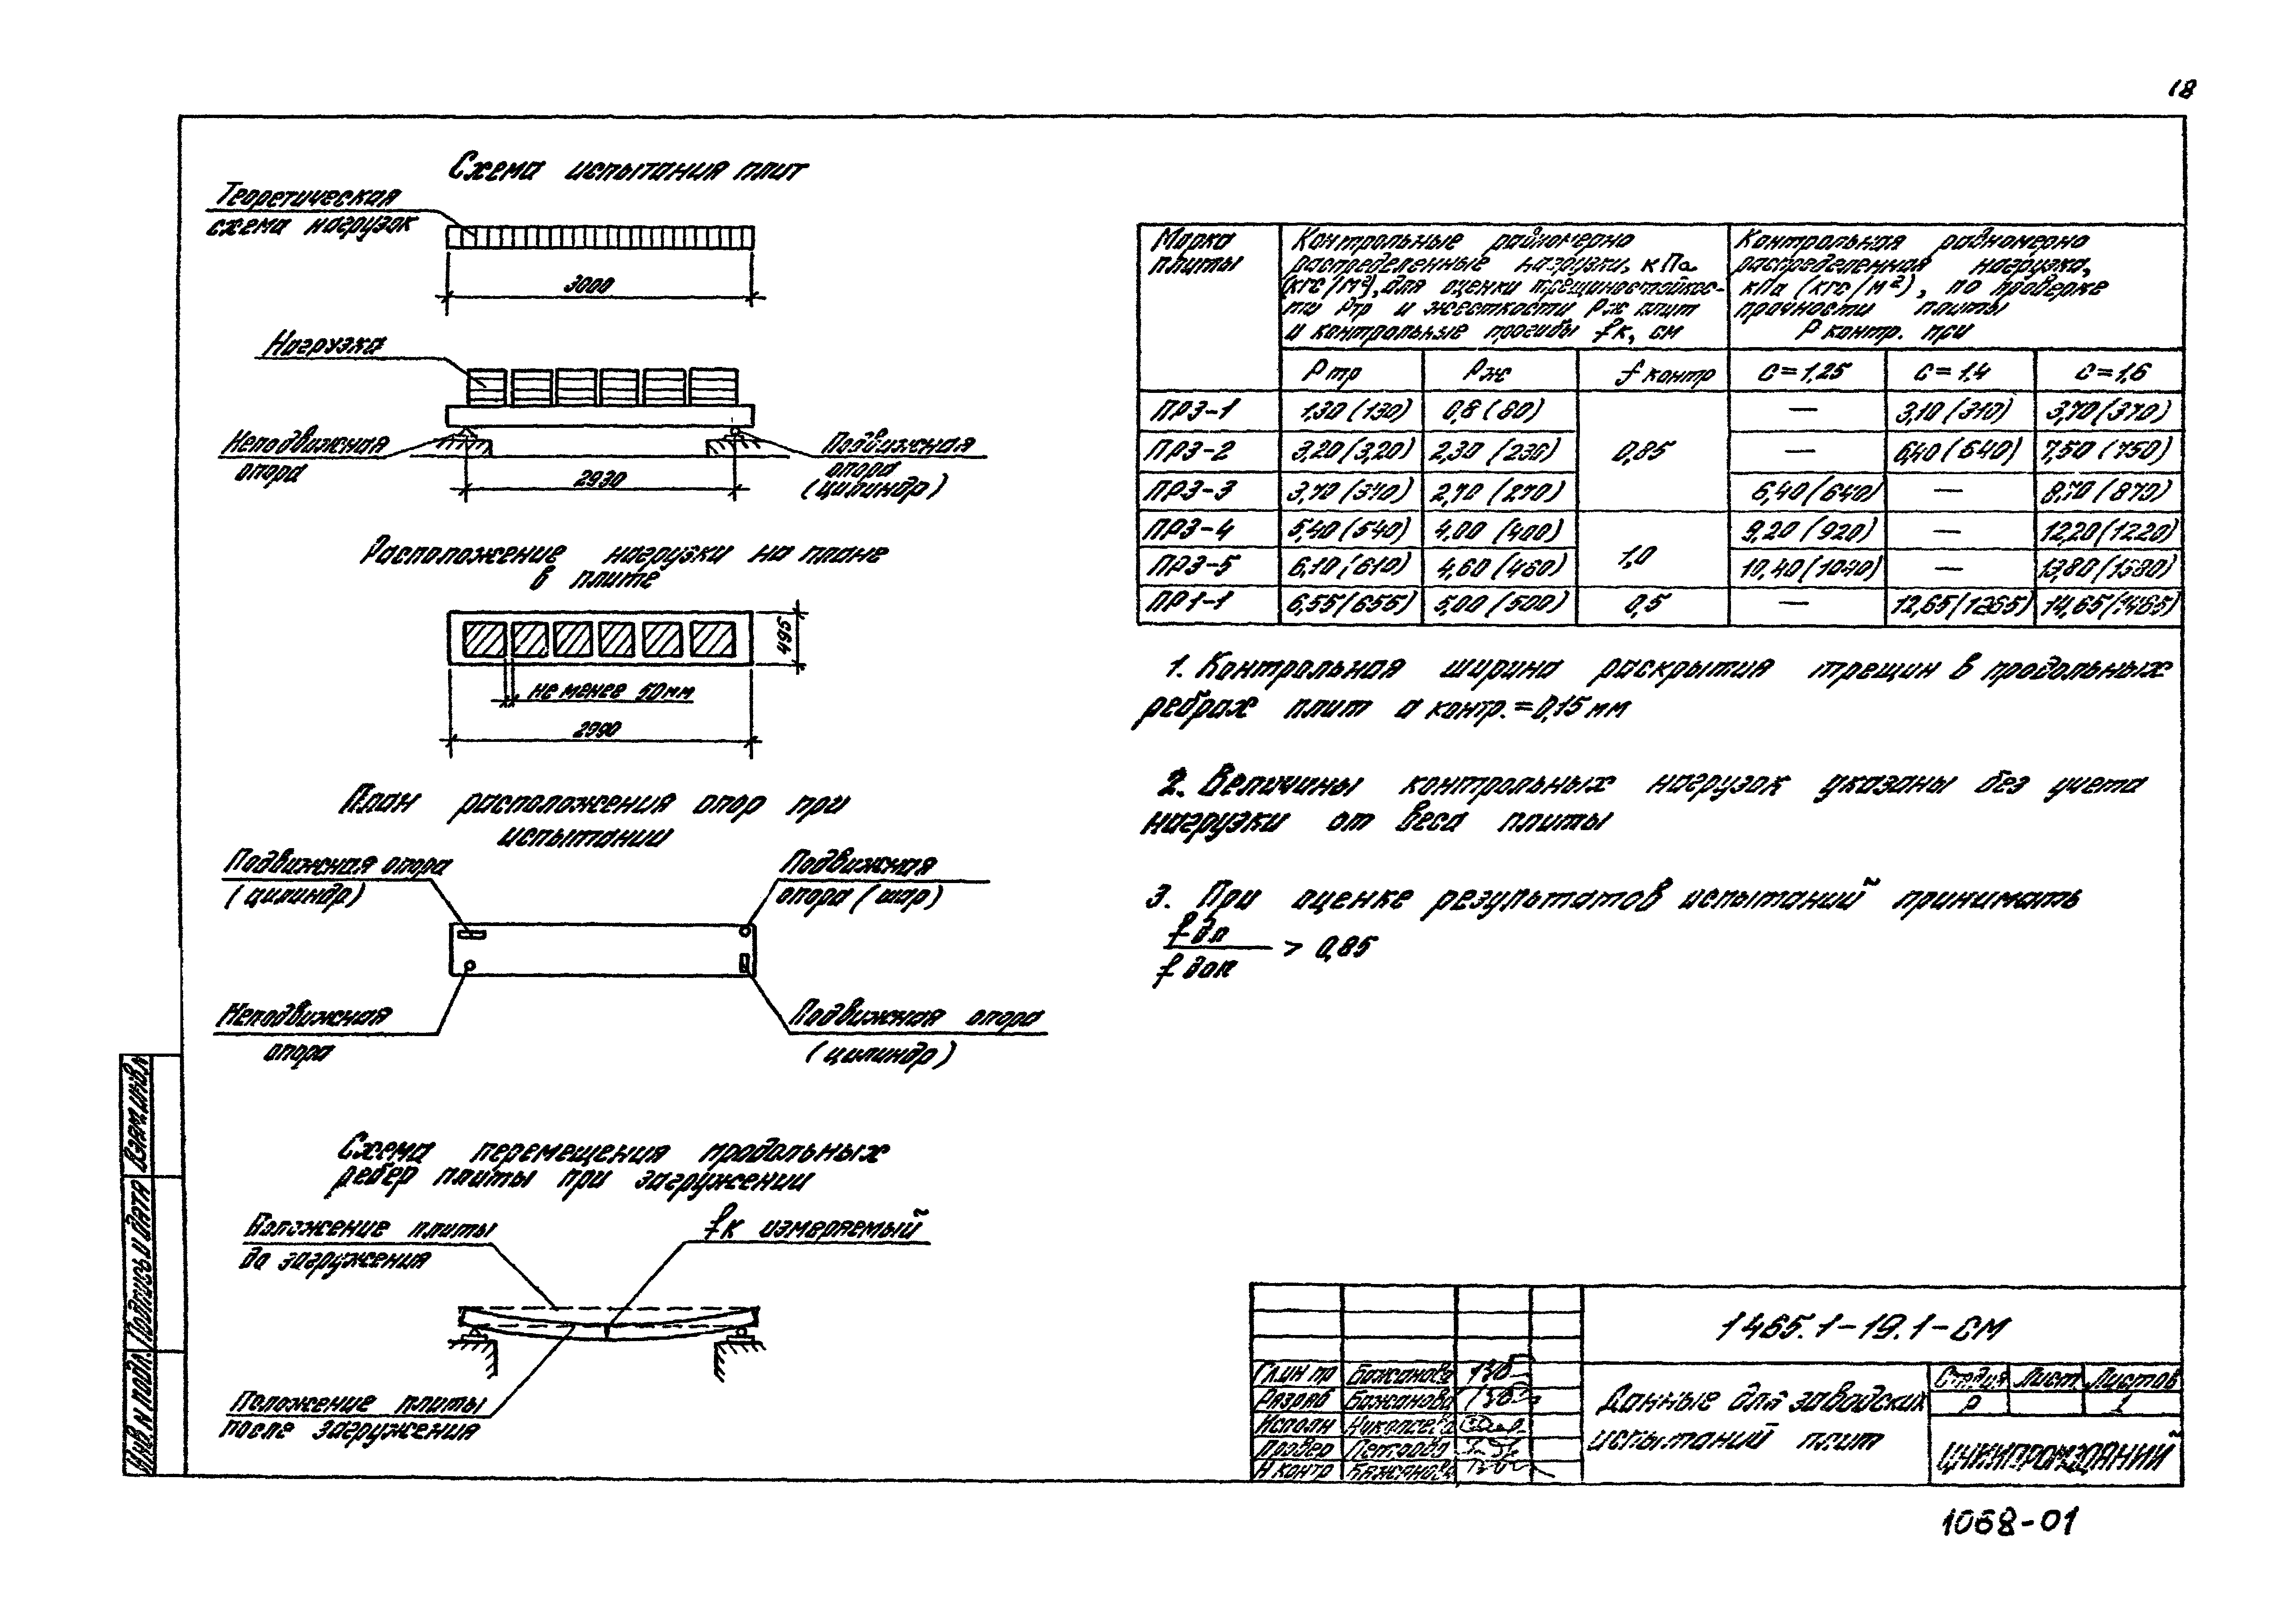 18
Схема испытания плит
Теоретическая
схема нагрузок
3000
Нагрузка
Неподвижная
опора
Подвижная
опора
(цилиндр)
2930
Расположение нагрузки на плане
в плите
495
не менее 50мм
2990
План расположения опор при
испытании
Подвижная опора
(цилиндр)
Подвижная
опора (шар)
Неподвижная
опора
Подвижная опора
(цилиндр)
Схема перемещения продольных
ребер плиты при загружении
Положение плиты
до загружения
fк измеряемый
Положение плиты
после загружения
Марка
плиты
Контрольные равномерно
распределенные нагрузки, кПа
(кгс/м²), для оценки трещиностойкос-
ти Ртр и жесткости Рж плит
и контрольные прогибы fк, см
Контрольная равномерно
распределенная нагрузка,
кПа (кгс/м²), по проверке
прочности плиты
Р контр. при
Ртр Рж f контр С=1,25 С=1,4 С=1,6
ПР3-1 1,30 (130) 0,8 (80) — 3,10 (310) 3,70 (370)
ПР3-2 3,20 (3,20) 2,30 (230) 0,85 — 6,40 (640) 7,50 (750)
ПР3-3 3,70 (370) 2,70 (270) 6,40 (640) — 8,70 (870)
ПР3-4 5,40 (540) 4,00 (400) 9,20 (920) — 12,20 (1220)
ПР3-5 6,10 (610) 4,60 (460) 1,0 10,40 (1040) — 13,80 (1380)
ПР1-1 6,55 (655) 5,00 (500) 0,5 — 12,65 (1265) 14,65 (1465)
1. Контрольная ширина раскрытия трещин в продольных
ребрах плит а контр.=0,15 мм
2. Величины контрольных нагрузок указаны без учета
нагрузки от веса плиты
3. При оценке результатов испытаний принимать
f дл
f док > 0,85
Взам.инв.N
Подпись и дата
Инв.N подл.
1465.1-19.1-СМ
Гл.ин пр Бажанова
Разраб Бажанова
Исполн Николаева
Провер Петрова
Н контр Бажанова
Данные для заводских
испытаний плит
Стадия Лист Листов
Р 1
ЦНИИПРОМЗДАНИЙ
1068-01